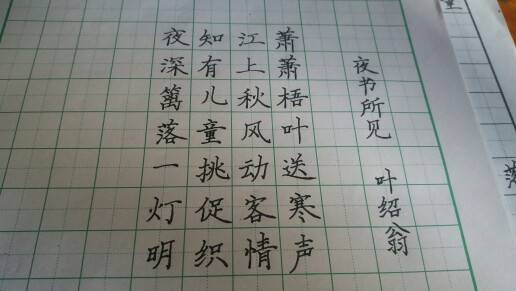 夜书所见
叶绍翁
萧萧梧叶送寒声
江上秋风动客情
知有儿童挑促织
夜深篱落一灯明